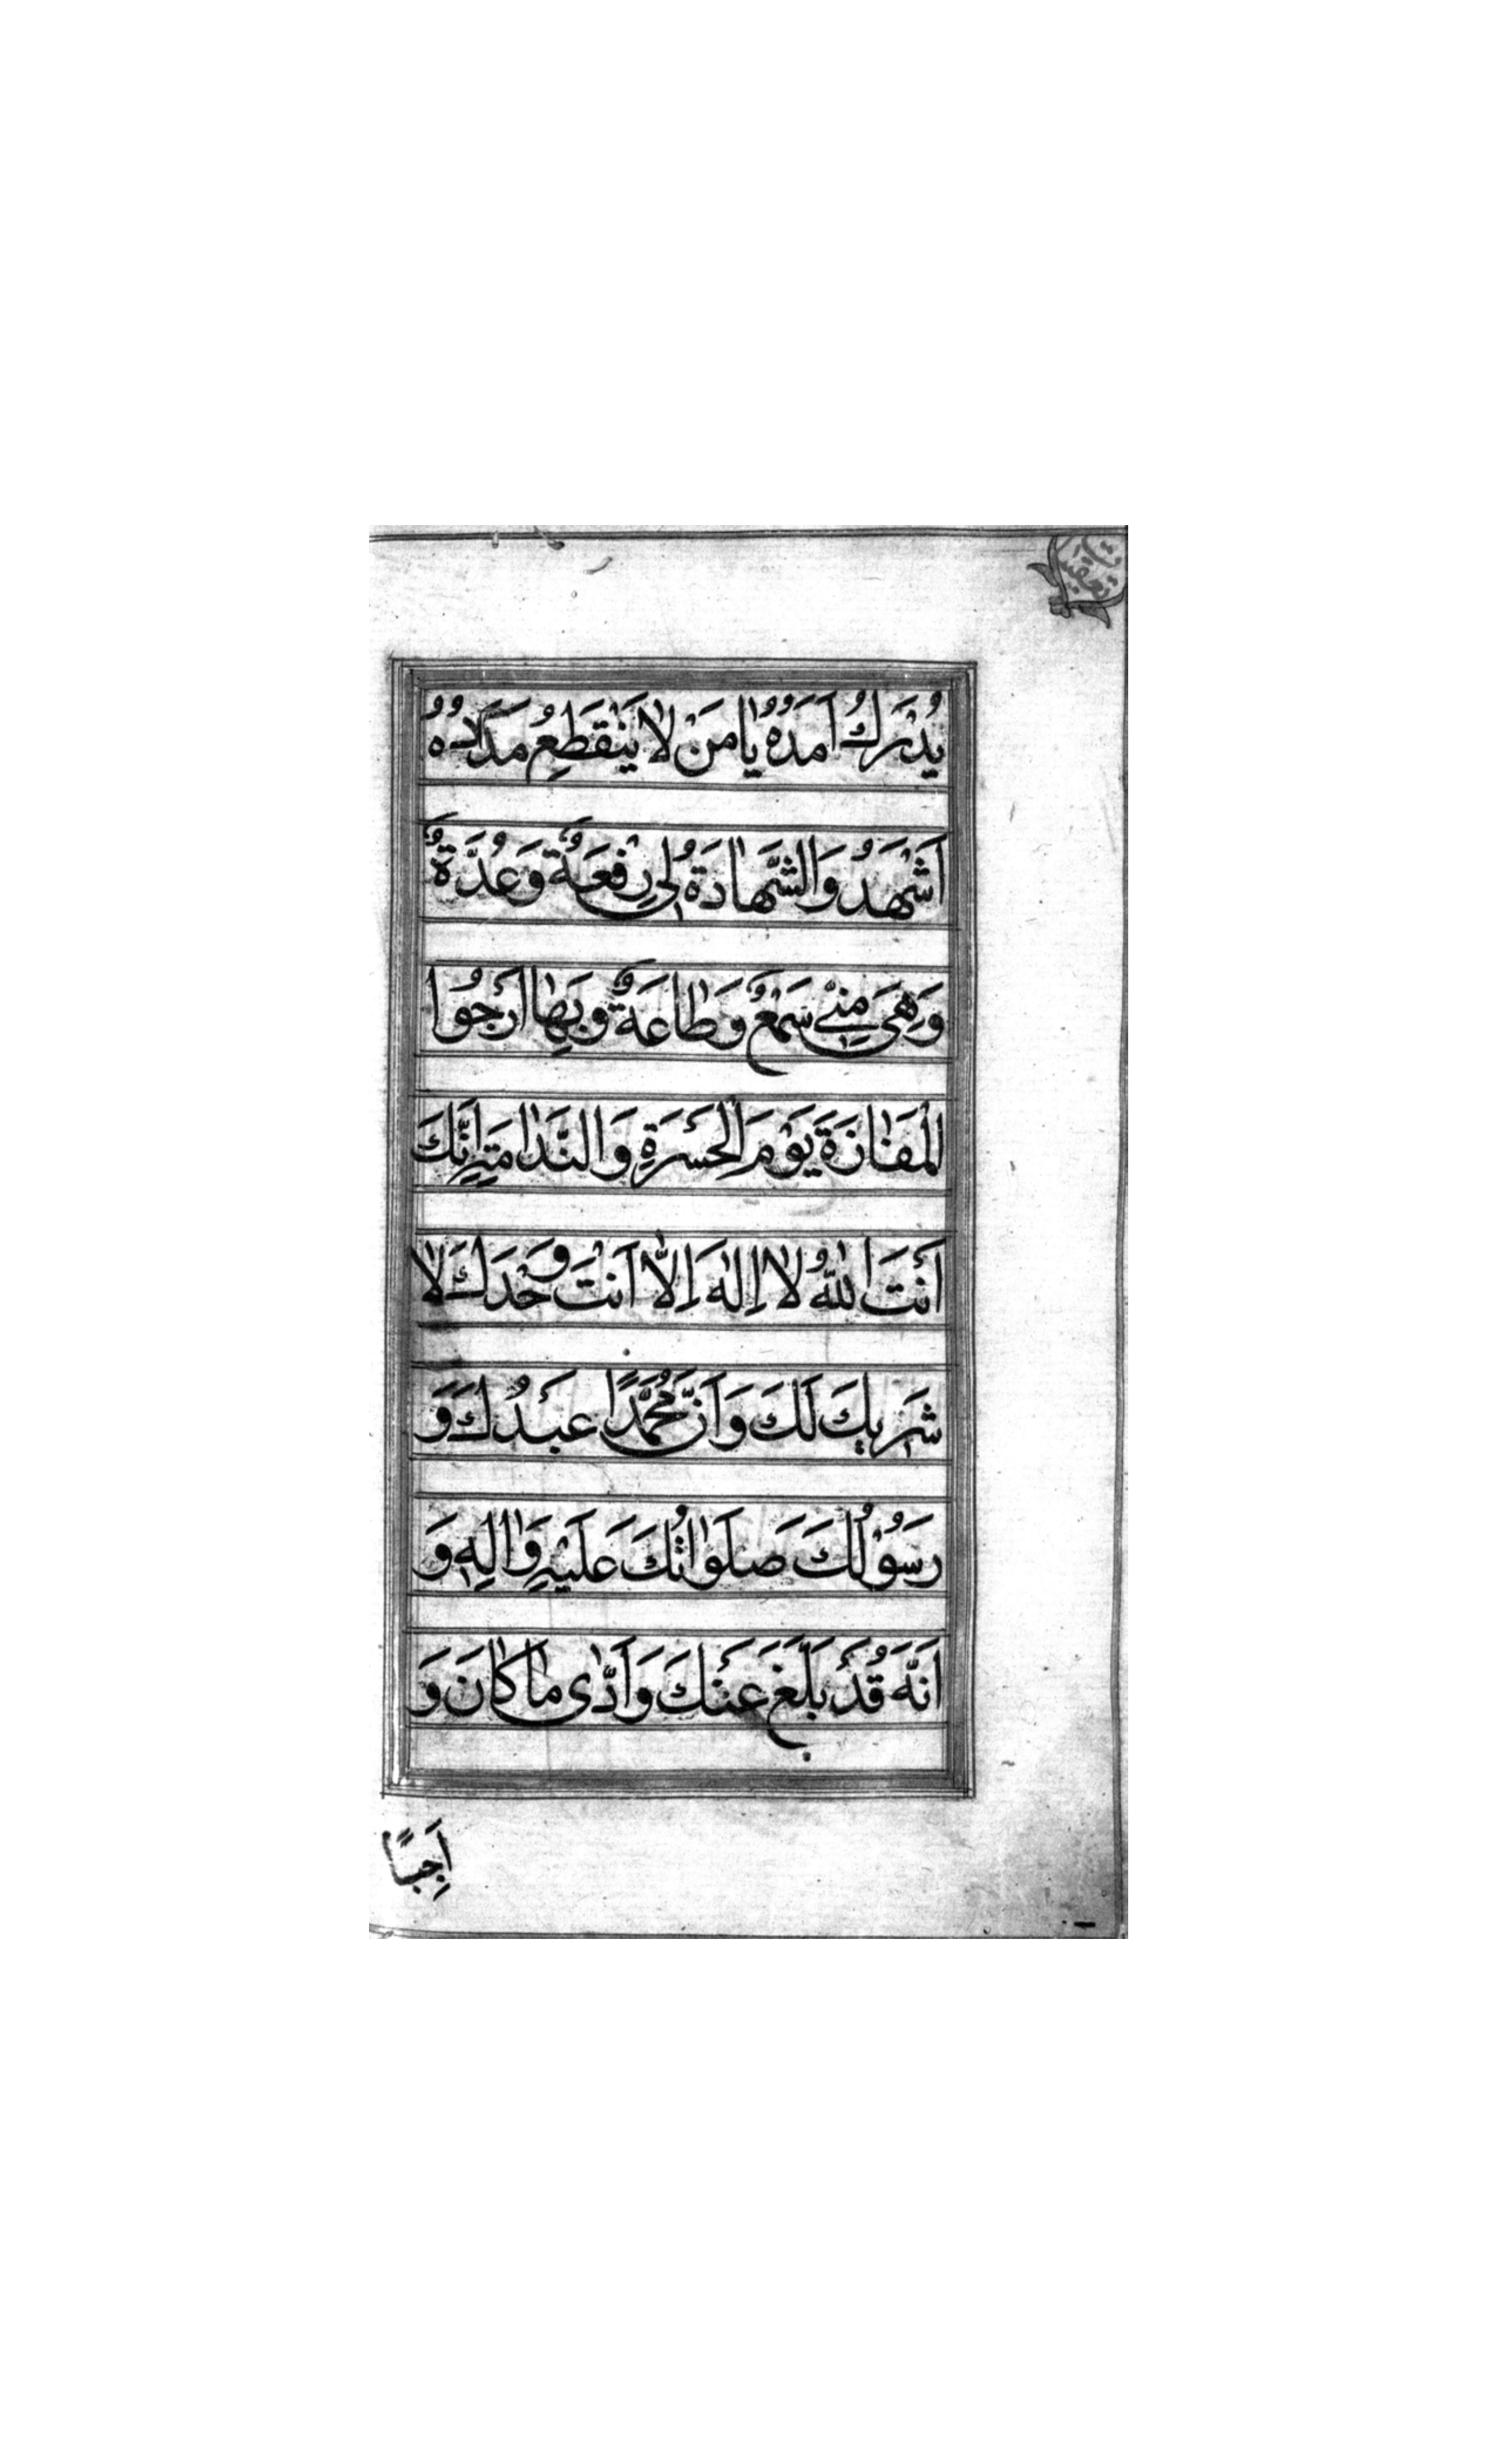 يُدْرَكُ اَمَدُهُ يا مَنْ لا يَنْقَطِعُ مَدَدُهُ
اَشْهَدُ وَالشَّهادَةُ لي رِفْعَةٌ وَعُدَّةٌ
وَهِيَ مِنّي سَمْعٌ وَطاعَةٌ وَبِها اَرْجُوا
الْمَفازَةَ يَوْمَ الْحَسْرَةِ وَالنَّدامَةِ اِنَّكَ
اَنْتَ اللهُ لا اِلهَ اِلاّ اَنْتَ وَحْدَكَ لا
شَريكَ لَكَ وَاَنَّ مُحَمَّدًا عَبْدُكَ وَ
رَسُوْلُكَ صَلَواتُكَ عَلَيْهِ وَالِهِ وَ
اَنَّهُ قَدْ بَلَّغَ عَنْكَ وَاَدّى ما كانَ وَ
اجِبًا